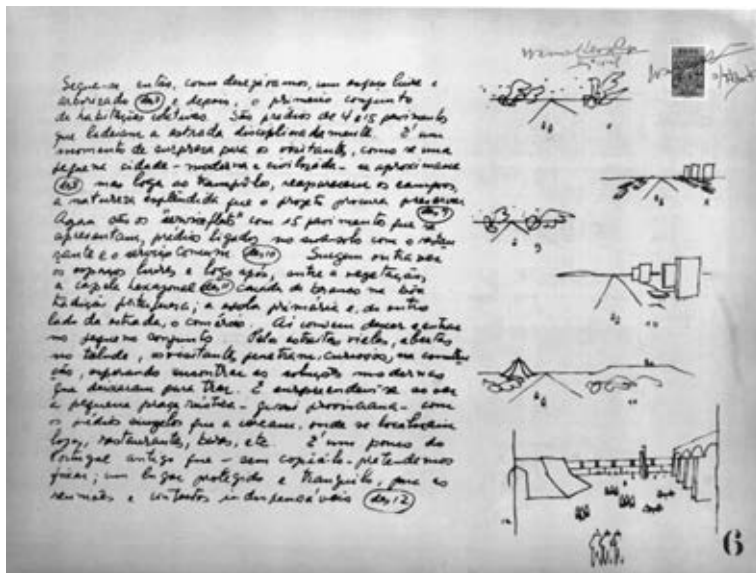 Segue-se, então, como desejávamos, um espaço livre e
arborizado des 7 e depois, o primeiro conjunto
de habitações coletivas. São prédios de 4 a 15 pavimentos
que ladeiam a estrada disciplinadamente. É um
momento de surpresa para os visitantes, como se uma
pequena cidade - moderna e civilizada - se aproximasse
des 8 mas logo ao transpô-los, reaparecem os campos,
a natureza esplêndida que o projeto procura preservar. des 9
Agora são os "service flats" com 15 pavimentos que se
apresentam, prédios ligados no subsolo com o restau
rante e o serviço comum des 10 Surgem outra vez
os espaços livres e logo após, entre a vegetação,
a capela hexagonal des 11 caiada de branco na boa
tradição portuguesa; a escola primária e, do outro
lado da estrada, o comércio. Aí convém descer e entrar
no pequeno conjunto. Pelas estreitas vielas, abertas
no talude, os visitantes penetram, curiosos, na constru
ção, esperando encontrar as soluções modernas
que deixaram para traz. E surpreendem-se ao ver
a pequena praça rústica - quase provinciana - com
os prédios singelos que a cercam, onde se localizam
lojas, restaurantes, bares, etc. É um pouco do
Portugal antigo que - sem copiá-lo - pretendemos
fixar; um lugar protegido e tranquilo, para as
reuniões e contactos indispensáveis des 12
9
6